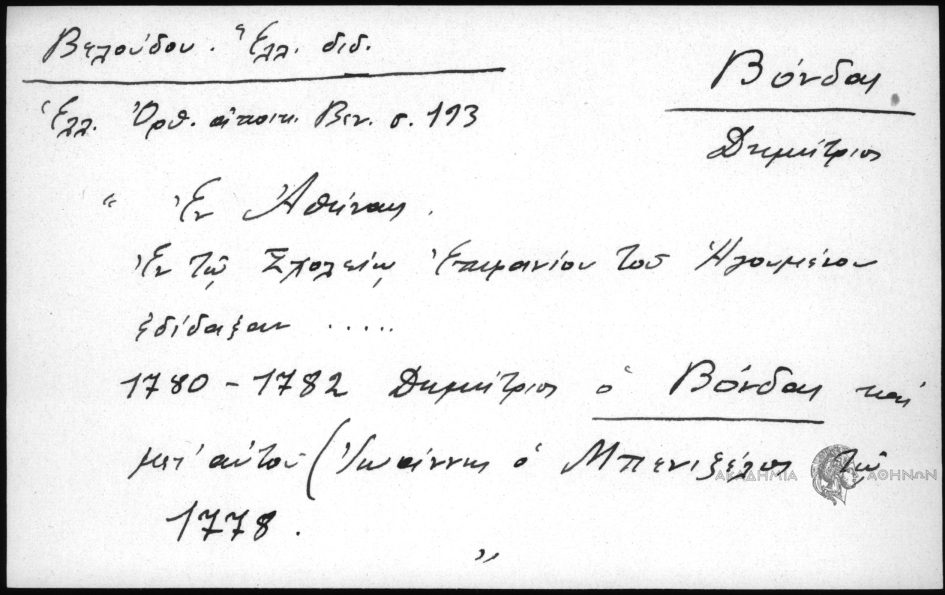 Βελούδου. Ἑλλ. διδ.
Βόνδας
Ἑλλ. Ὀρθ. ἀποικ. Βεν. σ. 193
Δημήτριος
" Ἐν Ἀθήναις.
Ἐν τῷ Σχολείῳ Ἐπιφανίου τοῦ Ἡγουμένου
ἐδίδαξαν .....
1780 - 1782 Δημήτριος ὁ Βόνδας καὶ
μετ' αὐτοῦ (Ἰωάννης ὁ Μπενιζέλος τῷ
ΑΚΑΔΗΜΙΑ ΑΘΗΝΩΝ
1778.
"